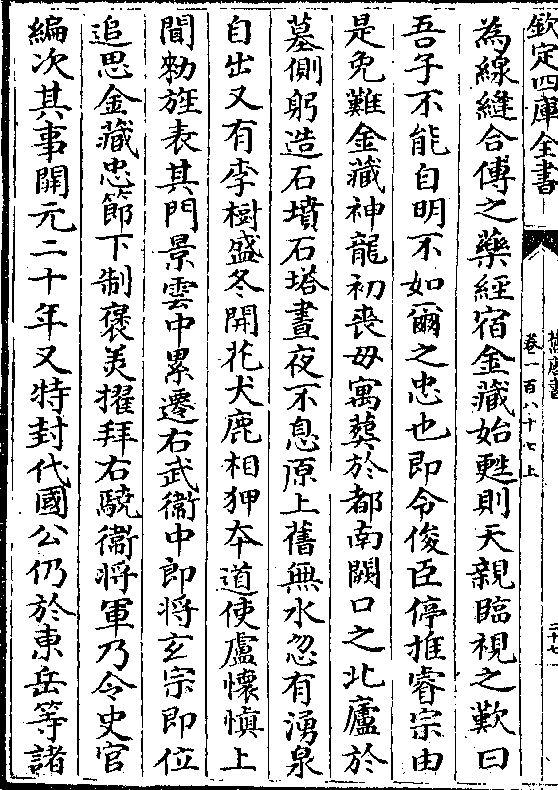 欽定四庫全書
舊唐書
卷一百八十七上
二十七
為線縫合傅之藥經宿金藏始甦則天親臨視之歎曰
吾子不能自明不如爾之忠也即令俊臣停推睿宗由
是免難金藏神龍初喪母寓葬於都南闕口之北廬於
墓側躬造石墳石塔晝夜不息原上舊無水忽有湧泉
自出又有李樹盛冬開花犬鹿相狎本道使盧懷慎上
聞勑旌表其門景雲中累遷右武衞中郎將玄宗即位
追思金藏忠節下制褒美擢拜右驍衞將軍乃令史官
編次其事開元二十年又特封代國公仍於東岳等諸